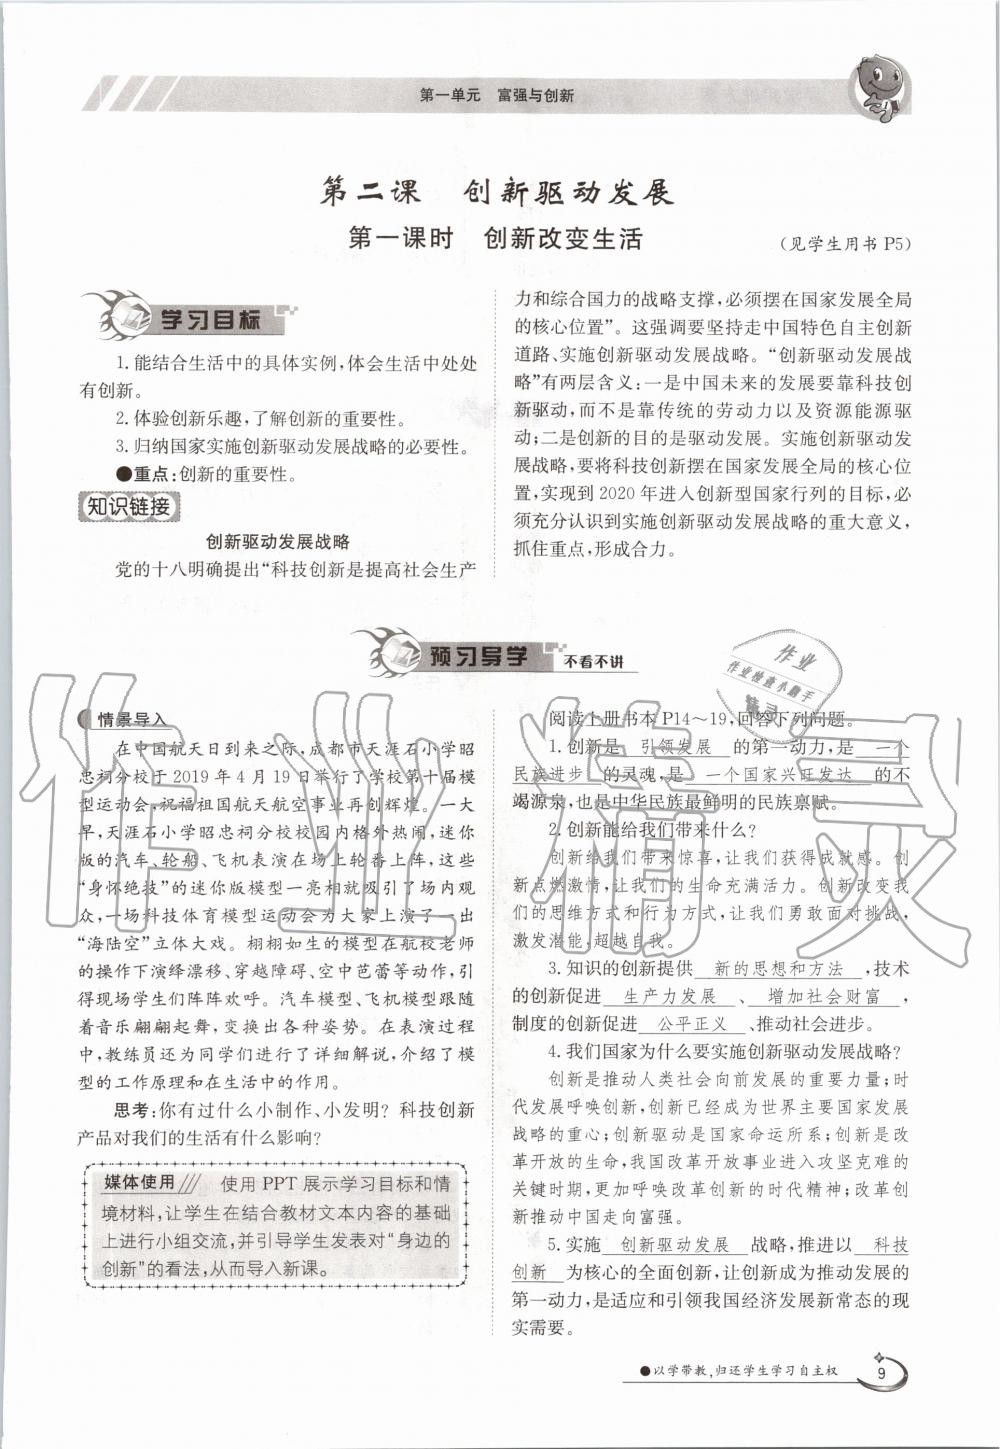 第一单元 富强与创新
第二课 创新驱动发展
第一课时 创新改变生活
(见学生用书 P5)
学习目标
1. 能结合生活中的具体实例,体会生活中处处
有创新。
2. 体验创新乐趣,了解创新的重要性。
3. 归纳国家实施创新驱动发展战略的必要性。
●重点:创新的重要性。
知识链接
创新驱动发展战略
党的十八明确提出“科技创新是提高社会生产
力和综合国力的战略支撑,必须摆在国家发展全局
的核心位置”。这强调要坚持走中国特色自主创新
道路、实施创新驱动发展战略。“创新驱动发展战
略”有两层含义:一是中国未来的发展要靠科技创
新驱动,而不是靠传统的劳动力以及资源能源驱
动;二是创新的目的是驱动发展。实施创新驱动发
展战略,要将科技创新摆在国家发展全局的核心位
置,实现到 2020 年进入创新型国家行列的目标,必
须充分认识到实施创新驱动发展战略的重大意义,
抓住重点,形成合力。
预习导学 不看不讲
情景导入
在中国航天日到来之际,成都市天涯石小学昭
忠祠分校于 2019 年 4 月 19 日举行了学校第十届模
型运动会,祝福祖国航天航空事业再创辉煌。一大
早,天涯石小学昭忠祠分校校园内格外热闹,迷你
版的汽车、轮船、飞机表演在场上轮番上阵,这些
“身怀绝技”的迷你版模型一亮相就吸引了场内观
众,一场科技体育模型运动会为大家上演了一出
“海陆空”立体大戏。栩栩如生的模型在航校老师
的操作下演绎漂移、穿越障碍、空中芭蕾等动作,引
得现场学生们阵阵欢呼。汽车模型、飞机模型跟随
着音乐翩翩起舞,变换出各种姿势。在表演过程
中,教练员还为同学们进行了详细解说,介绍了模
型的工作原理和在生活中的作用。
思考:你有过什么小制作、小发明? 科技创新
产品对我们的生活有什么影响?
媒体使用 使用 PPT 展示学习目标和情
境材料,让学生在结合教材文本内容的基础
上进行小组交流,并引导学生发表对“身边的
创新”的看法,从而导入新课。
阅读上册书本 P14～19,回答下列问题。
1. 创新是 引领发展 的第一动力,是 一个
民族进步 的灵魂,是 一个国家兴旺发达 的不
竭源泉,也是中华民族最鲜明的民族禀赋。
2. 创新能给我们带来什么?
创新给我们带来惊喜,让我们获得成就感。创
新点燃激情,让我们的生命充满活力。创新改变我
们的思维方式和行为方式,让我们勇敢面对挑战,
激发潜能,超越自我。
3. 知识的创新提供 新的思想和方法 ,技术
的创新促进 生产力发展 、 增加社会财富 ,
制度的创新促进 公平正义 、推动社会进步。
4. 我们国家为什么要实施创新驱动发展战略?
创新是推动人类社会向前发展的重要力量;时
代发展呼唤创新,创新已经成为世界主要国家发展
战略的重心;创新驱动是国家命运所系;创新是改
革开放的生命,我国改革开放事业进入攻坚克难的
关键时期,更加呼唤改革创新的时代精神;改革创
新推动中国走向富强。
5. 实施 创新驱动发展 战略,推进以 科技
创新 为核心的全面创新,让创新成为推动发展的
第一动力,是适应和引领我国经济发展新常态的现
实需要。
●以学带教,归还学生学习自主权
9
作业精灵
作业
作业检查小助手
精灵